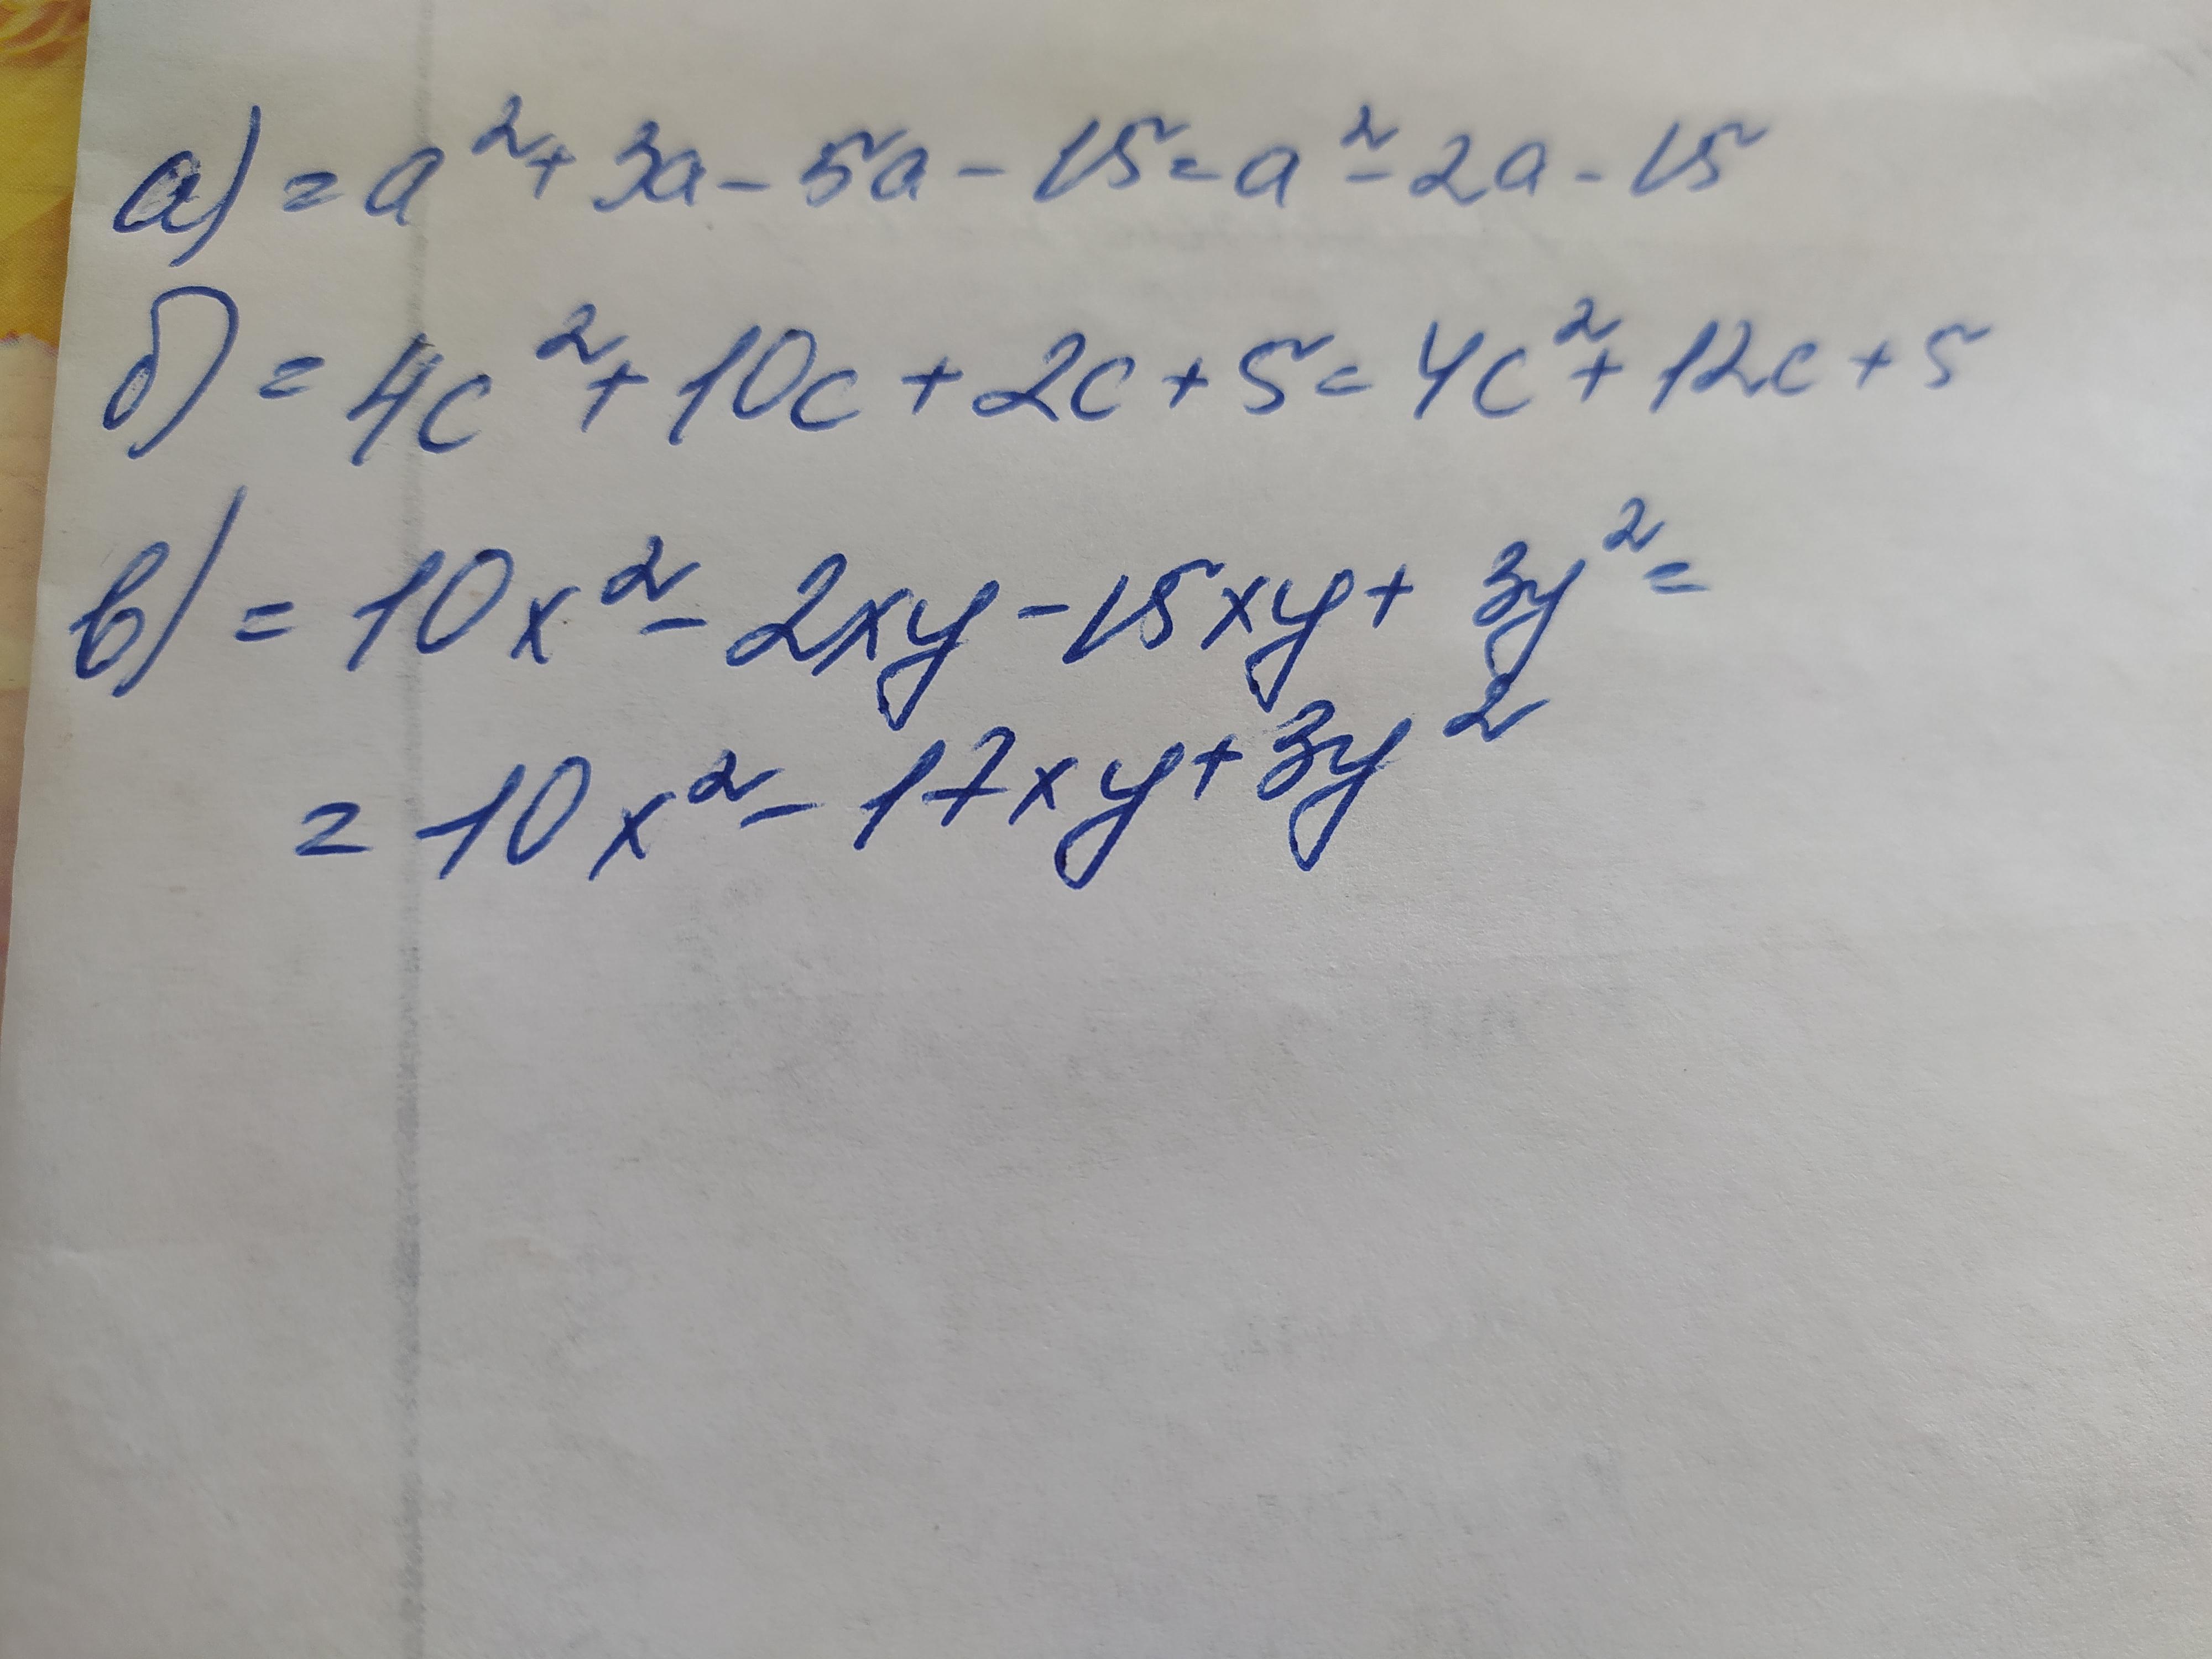 а) = a² + 3a - 5a - 15 = a² - 2a - 15
б) = 4c² + 10c + 2c + 5 = 4c² + 12c + 5
в) = 10x² - 2xy - 15xy + 3y² =
= 10x² - 17xy + 3y²